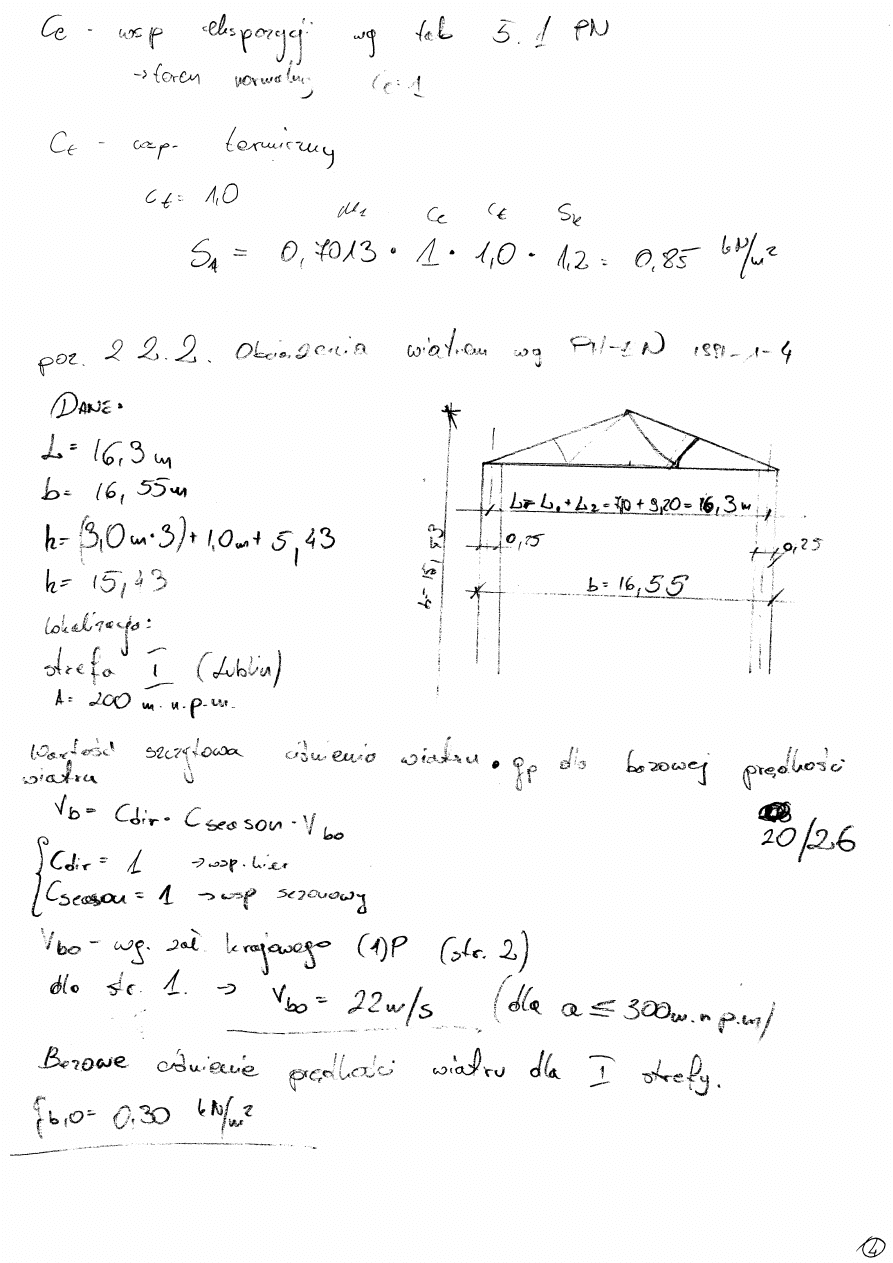 Ce - wsp ekspozycji wg tab 5.1 PN
→ teren normalny Ce=1
Ct - wsp. termiczny
Ct = 1,0
μ1 Ce Ct Sk
S1 = 0,7013 · 1 · 1,0 · 1,2 = 0,85 kN/m²
poz. 2 2.2. Obciążenia wiatrem wg PN-EN 1991-1-4
DANE:
L = 16,3 m
b = 16,55m
h = (3,0m·3) + 1,0m + 5,43
h = 15,43
lokalizacja:
strefa I (Lublin)
A = 200 m.n.p.m.
L = L1 + L2 = 7,10 + 9,20 = 16,3 m
0,25
0,25
b = 16,55
Wartość szczytowa ciśnienia wiatru · qp dla bazowej prędkości
wiatru
Vb = Cdir · Cseason · Vbo
20/26
Cdir = 1 → wsp. kier
Cseason = 1 → wsp sezonowy
Vbo - wg. zał. krajowego (1)P (str. 2)
dla str. 1. → Vbo = 22m/s (dla a ≤ 300m.n p.m/
Bazowe ciśnienie prędkości wiatru dla I strefy.
qb,0 = 0,30 kN/m²
4